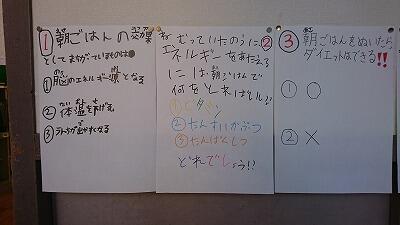 1 朝ごはんの効果
としてまちがているものは
①脳のエネルギー源となる
②体温を下げる
③
ねむっていたのうに、②
エネルギーをあたえる
には朝ごはんで
何をとればいい?
①ビタミン
②たんすいかぶつ
③たんぱくしつ
どれでしょう!?
③朝ごはんをぬいたら
ダイエットはできる!!
① ○
② ×